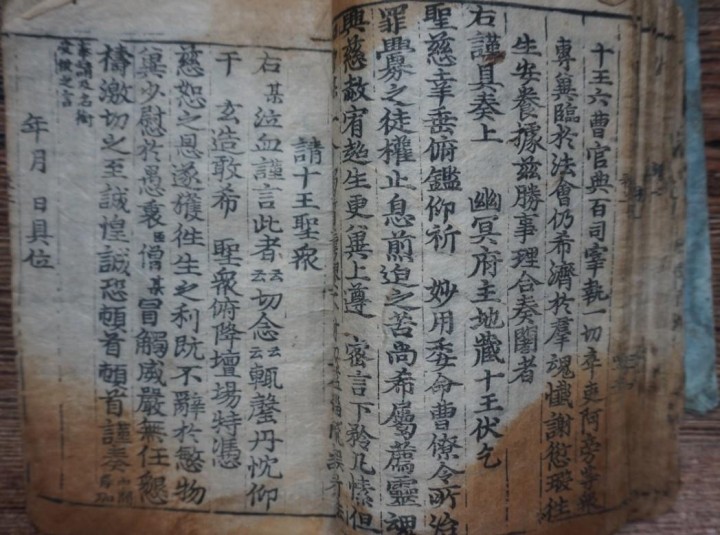 十王六曹官典百司宰執一切
專兾臨於法會仍希濟於羣魂懺謝愆瑕往
生安養據玆勝事理合奏聞者
右謹具奏上 幽冥府主地藏十王伏乞
聖慈幸垂俯鑑仰祈 妙用委命曹僚令所治
罪㸑之徒權止息煎迫之苦尚希屬薦靈魂
興慈赦宥超生更兾上尊 密言下矜凡愫但
請十王聖衆
右某泣血謹言此者云云切念云云輒罄丹忱仰
干 玄造敢希 聖衆俯降壇場特憑
慈恕之恩遂獲徃生之利旣不辭於慜物
兾少慰於愚衷臣僧某冒觸威嚴無任懇
禱激切之至誠惶誠恐頓首頓首謹奏
年月 日具位